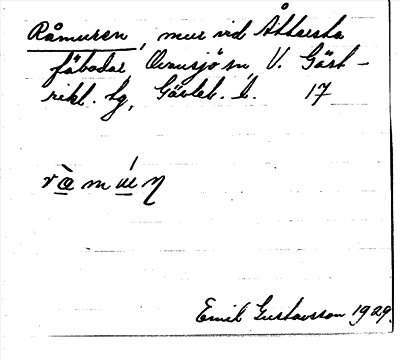 Råmuren, mur vid Åttersta
fäbodar, Ovansjö sn, V. Gäst-
rikl. tg, Gävleb. l. 17
Emil Gustavsson 1929.